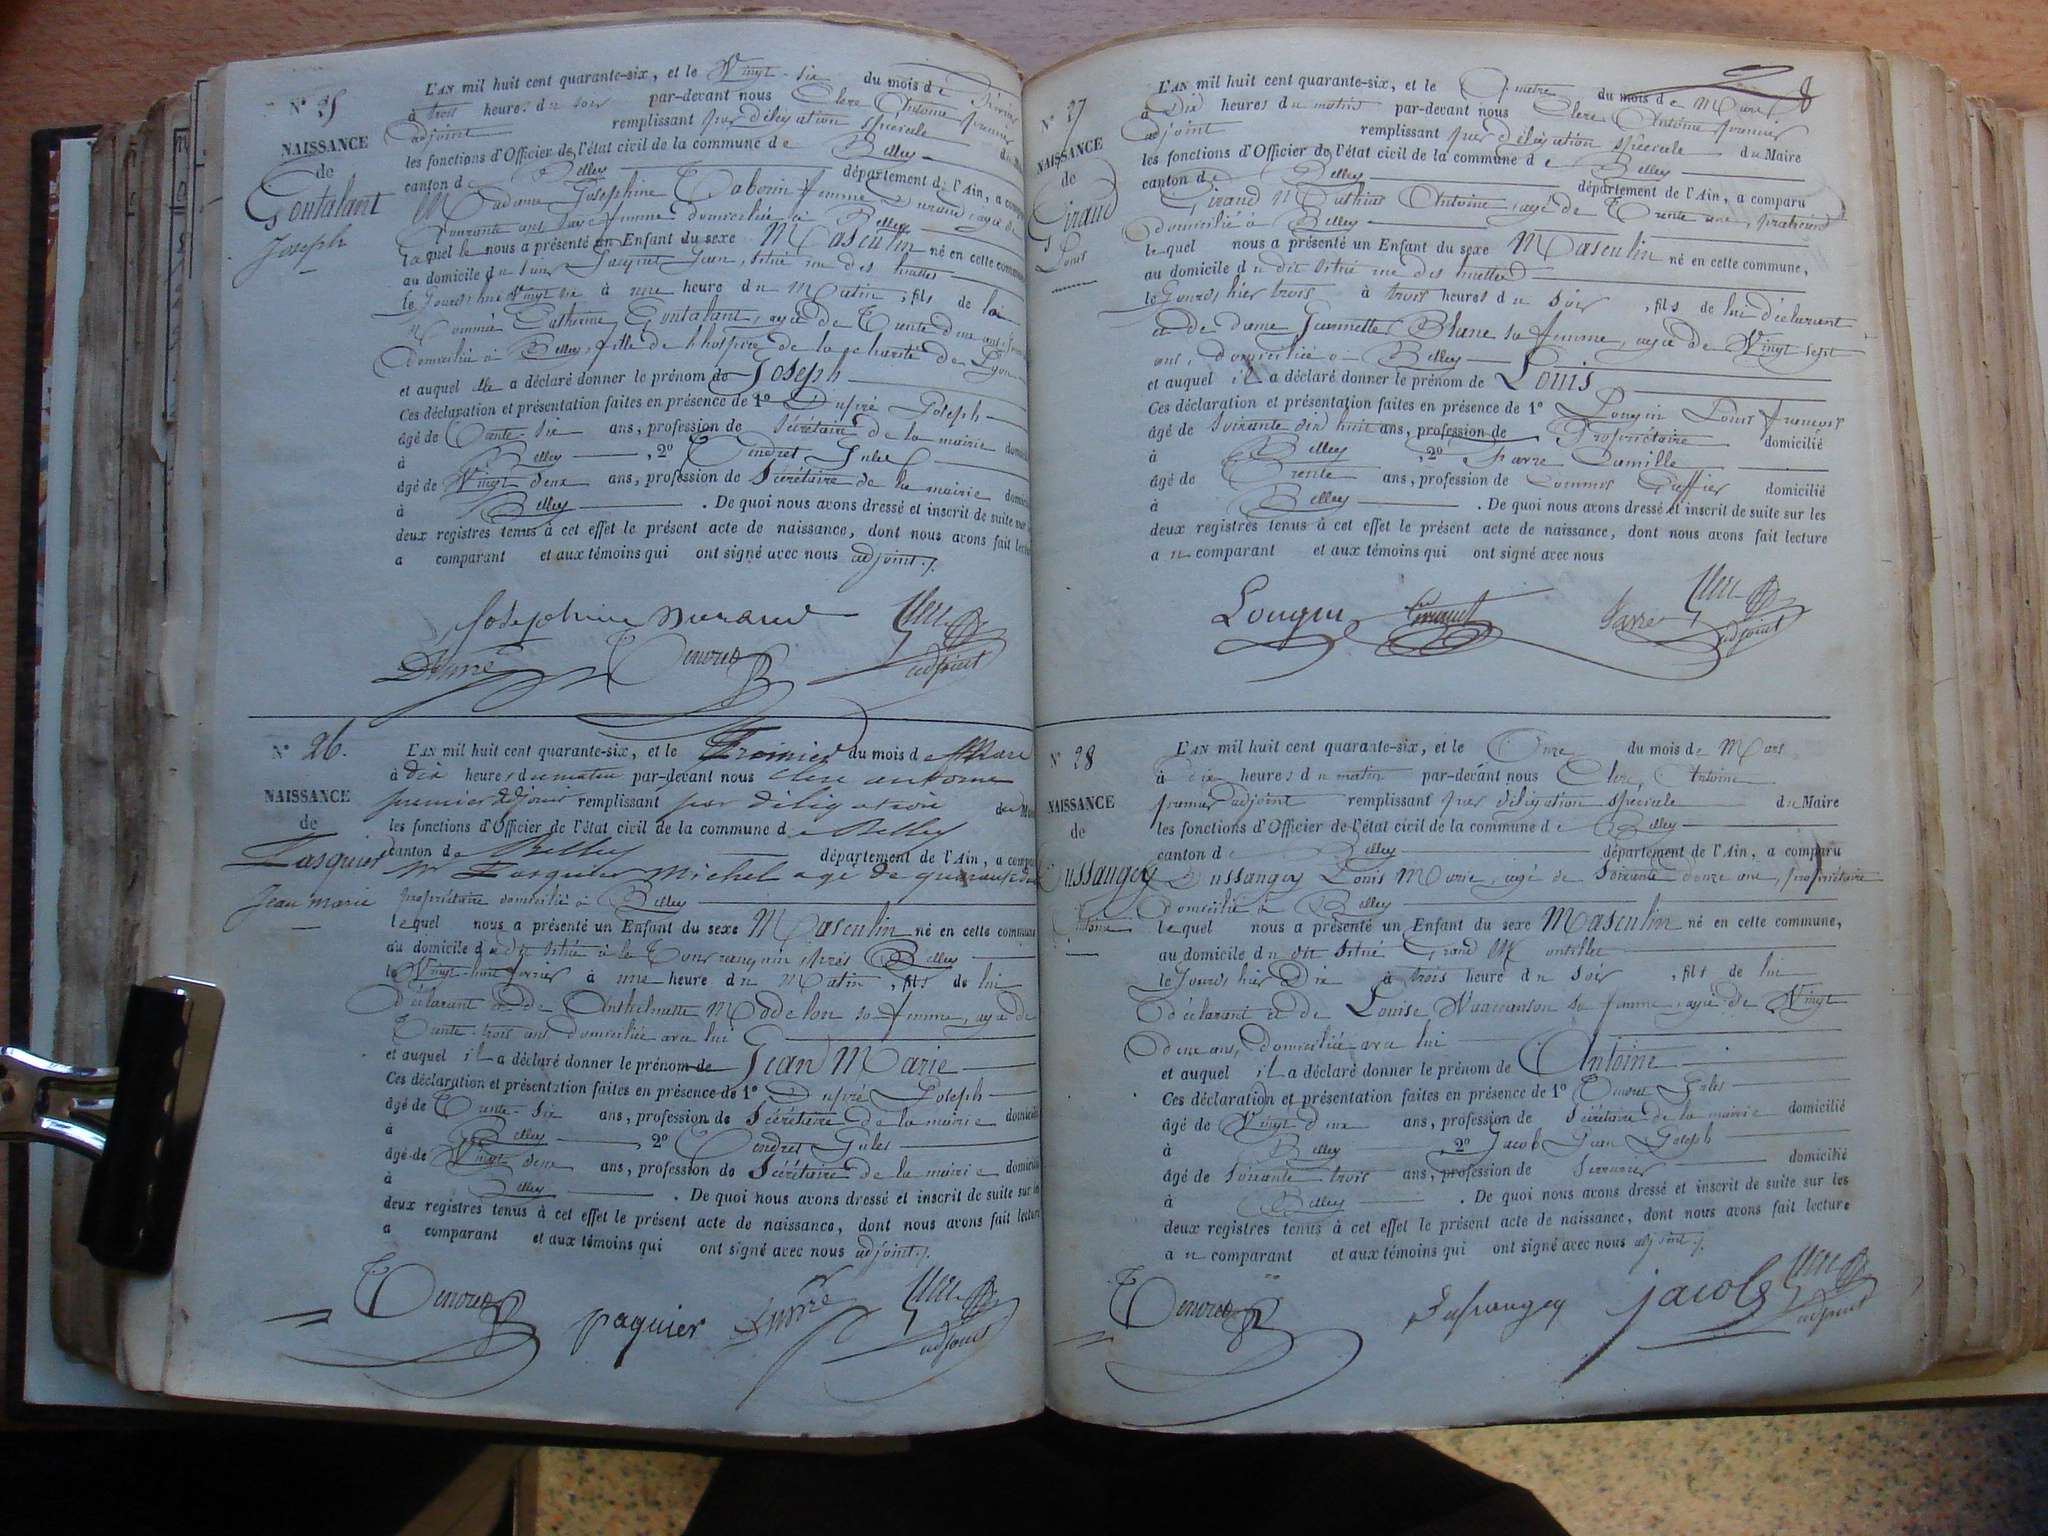 N° 25
NAISSANCE
de
Goutalant
Joseph
L'AN mil huit cent quarante-six, et le Vingt-six du mois de Février
à trois heures du soir par-devant nous Clerc Antoine premier
adjoint remplissant par délégation spéciale du Maire
les fonctions d'Officier de l'état civil de la commune de Belley
canton de Belley département de l'Ain, a comparu
Madame Josephine femme Durand, agée de
quarante ans sage femme domiciliée à Belley
laquelle nous a présenté un Enfant du sexe Masculin né en cette commune
au domicile du sieur Jacquet Jean, situé rue des huttes
le Jourd'hui vingt six à une heure du Matin, fils de la
Nommée Catherine Goutalant, agée de Trente deux ans
domiciliée à Belley, fille de l'hospice de la charité de Lyon
et auquel elle a déclaré donner le prénom de Joseph
Ces déclaration et présentation faites en présence de 1° Dupré Joseph
âgé de Trente-Six ans, profession de Sécrétaire de la mairie domicilié
à Belley, 2° Tendret Jules
âgé de Vingt deux ans, profession de Sécrétaire de la mairie domicilié
à Belley. De quoi nous avons dressé et inscrit de suite sur les
deux registres tenus à cet effet le présent acte de naissance, dont nous avons fait lecture
a comparant et aux témoins qui ont signé avec nous adjoint./.
Josephine Durand Clerc
Dupré Tendret adjoint
N° 26.
NAISSANCE
de
Pasquier
Jean Marie
L'AN mil huit cent quarante-six, et le Premier du mois de Mars
à dix heures du matin par-devant nous Clerc antoine
premier adjoint remplissant par déligation du Maire
les fonctions d'Officier de l'état civil de la commune de Belley
canton de Belley département de l'Ain, a comparu
Mr Pasquier Michel agé de quarante
propriétaire domicilié à Belley
lequel nous a présenté un Enfant du sexe Masculin né en cette commune
au domicile du dit situé à près Belley
le Vingt-huit février à une heure du Matin, fils de lui
déclarant et de Anthelmette Modelon sa femme, agée de
Trente-trois ans, domiciliée avec lui
et auquel il a déclaré donner le prénom de Jean Marie
Ces déclaration et présentation faites en présence de 1° Dupré Joseph
âgé de Trente-Six ans, profession de Sécrétaire de la mairie domicilié
à Belley, 2° Tendret Jules
âgé de Vingt deux ans, profession de Sécrétaire de la mairie domicilié
à Belley. De quoi nous avons dressé et inscrit de suite sur les
deux registres tenus à cet effet le présent acte de naissance, dont nous avons fait lecture
a comparant et aux témoins qui ont signé avec nous adjoint./.
Tendret paquier Dupré Clerc
adjoint
8
N° 27
NAISSANCE
de
Giraud
Louis
L'AN mil huit cent quarante-six, et le Quatre du mois de Mars
à Dix heures du matin par-devant nous Clerc Antoine premier
adjoint remplissant par déligation spéciale du Maire
les fonctions d'Officier de l'état civil de la commune de Belley
canton de Belley département de l'Ain, a comparu
Giraud Mathias Antoine, agé de Trente ans, praticien
domicilié à Belley
lequel nous a présenté un Enfant du sexe Masculin né en cette commune,
au domicile du dit situé rue des huttes
le Jourd'hier trois à trois heures du soir, fils de lui déclarant
et de dame Jeannette Blanc sa femme, agée de Vingt sept
ans, domiciliée à Belley
et auquel il a déclaré donner le prénom de Louis
Ces déclaration et présentation faites en présence de 1° Lougin Louis françois
âgé de Soixante dix huit ans, profession de Propriétaire domicilié
à Belley, 2° Favre Camille
âgé de Trente ans, profession de Commis Greffier domicilié
à Belley. De quoi nous avons dressé et inscrit de suite sur les
deux registres tenus à cet effet le présent acte de naissance, dont nous avons fait lecture
au comparant et aux témoins qui ont signé avec nous
Lougin Giraud Favre Clerc
adjoint
N° 28
NAISSANCE
de
Dussangey
Antoine
L'AN mil huit cent quarante-six, et le Onze du mois de Mars
à dix heures du matin par-devant nous Clerc Antoine
premier adjoint remplissant par déligation spéciale du Maire
les fonctions d'Officier de l'état civil de la commune de Belley
canton de Belley département de l'Ain, a comparu
Dussangey Louis Marie, agé de Soixante douze ans, propriétaire
domicilié à Belley
lequel nous a présenté un Enfant du sexe Masculin né en cette commune,
au domicile du dit situé Grand
le Jourd'hier Dix à trois heure du soir, fils de lui
déclarant et de Louise sa femme, agée de Vingt
deux ans, domiciliée avec lui
et auquel il a déclaré donner le prénom de Antoine
Ces déclaration et présentation faites en présence de 1° Tendret Jules
âgé de Vingt deux ans, profession de Sécrétaire de la mairie domicilié
à Belley 2° Jacob Jean Joseph
âgé de Soixante trois ans, profession de Serrurier domicilié
à Belley. De quoi nous avons dressé et inscrit de suite sur les
deux registres tenus à cet effet le présent acte de naissance, dont nous avons fait lecture
au comparant et aux témoins qui ont signé avec nous adjoint./.
Tendret Dussangey jacob Clerc
adjoint